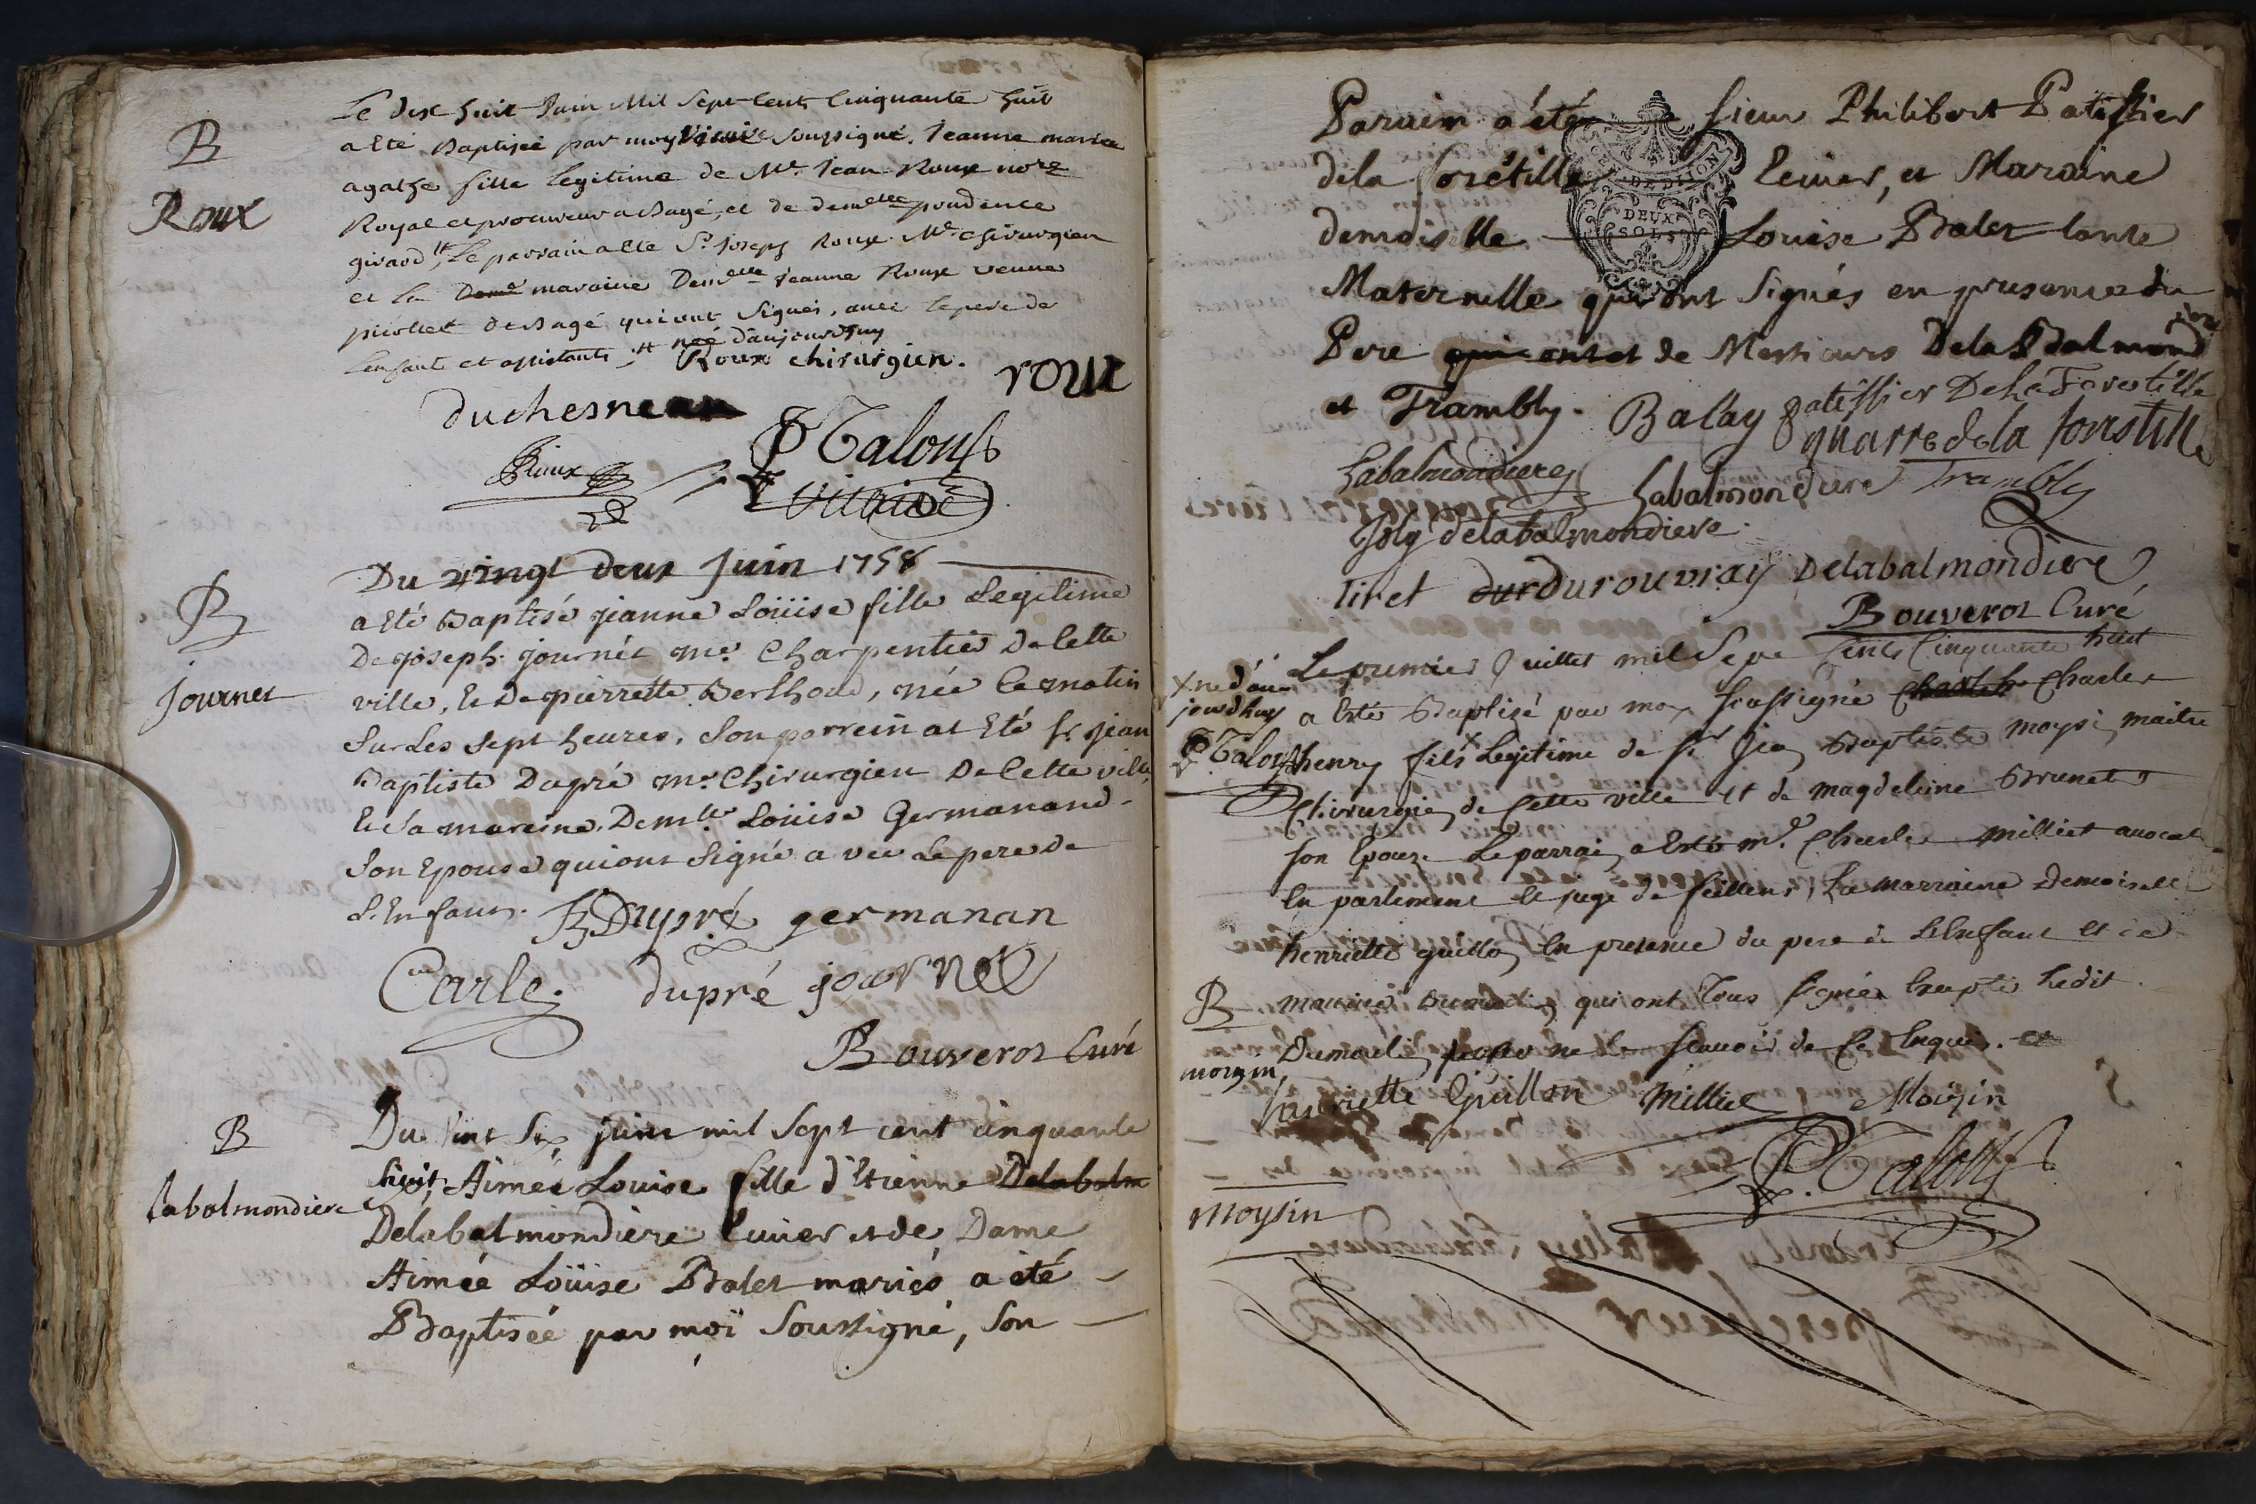 B
Roux
Le dix huit Juin Mil Sept Cent Cinquante huit
a Eté Baptisée par moy Vicaire soussigné. Jeanne marie
agathe fille legitime de Mr. Jean Roux nore
Royal et procureur a Bagé, et de demelle prudence
girard, Le parrain a ete Sr. joseph Roux Me. chirurgien
et la Deme maraine Demelle jeanne Roux veuve
picollet de Bagé qui ont Signés, avec le pere de
née d'aujourdhuy
L'enfant et assistants Roux chirurgien. roux
duchesneau
Roux
P Talon
Vicaire
B
journet
Du vingt deux Juin 1758
a Eté Baptisé jeanne Loüise fille Legitime
De joseph journét me. Charpentier De Cette
ville, Et De pierrette Berthoud, née Ce matin
Sur Les Sept heures, Son parrein at Eté sr. jean
Baptiste Dupré me. Chirurgien De Cette ville
Et Sa mareine. Demlle Loüise Germanand
Son Epouse qui ont Signé avec Le pere de
L'Enfant. JB Dupré germanan
Carle. dupré journet
Bouverot Curé
B
labalmondiere
Du Vint Six juin mil Sept cent cinquante
huit, Aimée Louise fille d'Etienne Delabalm
Delabalmondiere Ecuier et de Dame
Aimée Loüise Balet mariés a été
Baptisée par moi Soussigné, Son
Parain a été sieur Philibert Patissier
dela forêtille Ecuier, et Maraine
demoiselle Louise Balet tante
Maternelle qui ont Signés en presence du
GEN. DE DIJON
DEUX
SOLS
Pere qui ont et de Messieurs Dela Balmond
et Trambly. Balay Patissier De La Foretille
quarré dela foretille
Labalmondiere Labalmondiere Trambly
Joly delabalmondiere
tiret dur durouvray Delabalmondiere
Bouverot Curé
Le premier Juillet mil Sept Cents Cinquante huit
x ne d'au
jourdhuy
a Esté Baptizé par moy soussigné Charles Charles
P. Talon
henry fils x Legitime de sr Jean Baptiste moysin maitre
Chirurgien de Cette ville Et de magdeleine Brunet
son Epouze Le parrain a Esté mr. Charles milliet avocat
En parlement Et juge de feillens, La marraine Demoiselle
henriette guillon En presence du pere de L'Enfant Et de
B
moysin
maurice Dumoulin qui ont Tous signés Excepté Ledit
Dumoulin pour ne le scavoir de Ce Enquis.
henriette Guillon Milliet Moysin
P. Talon
moysin